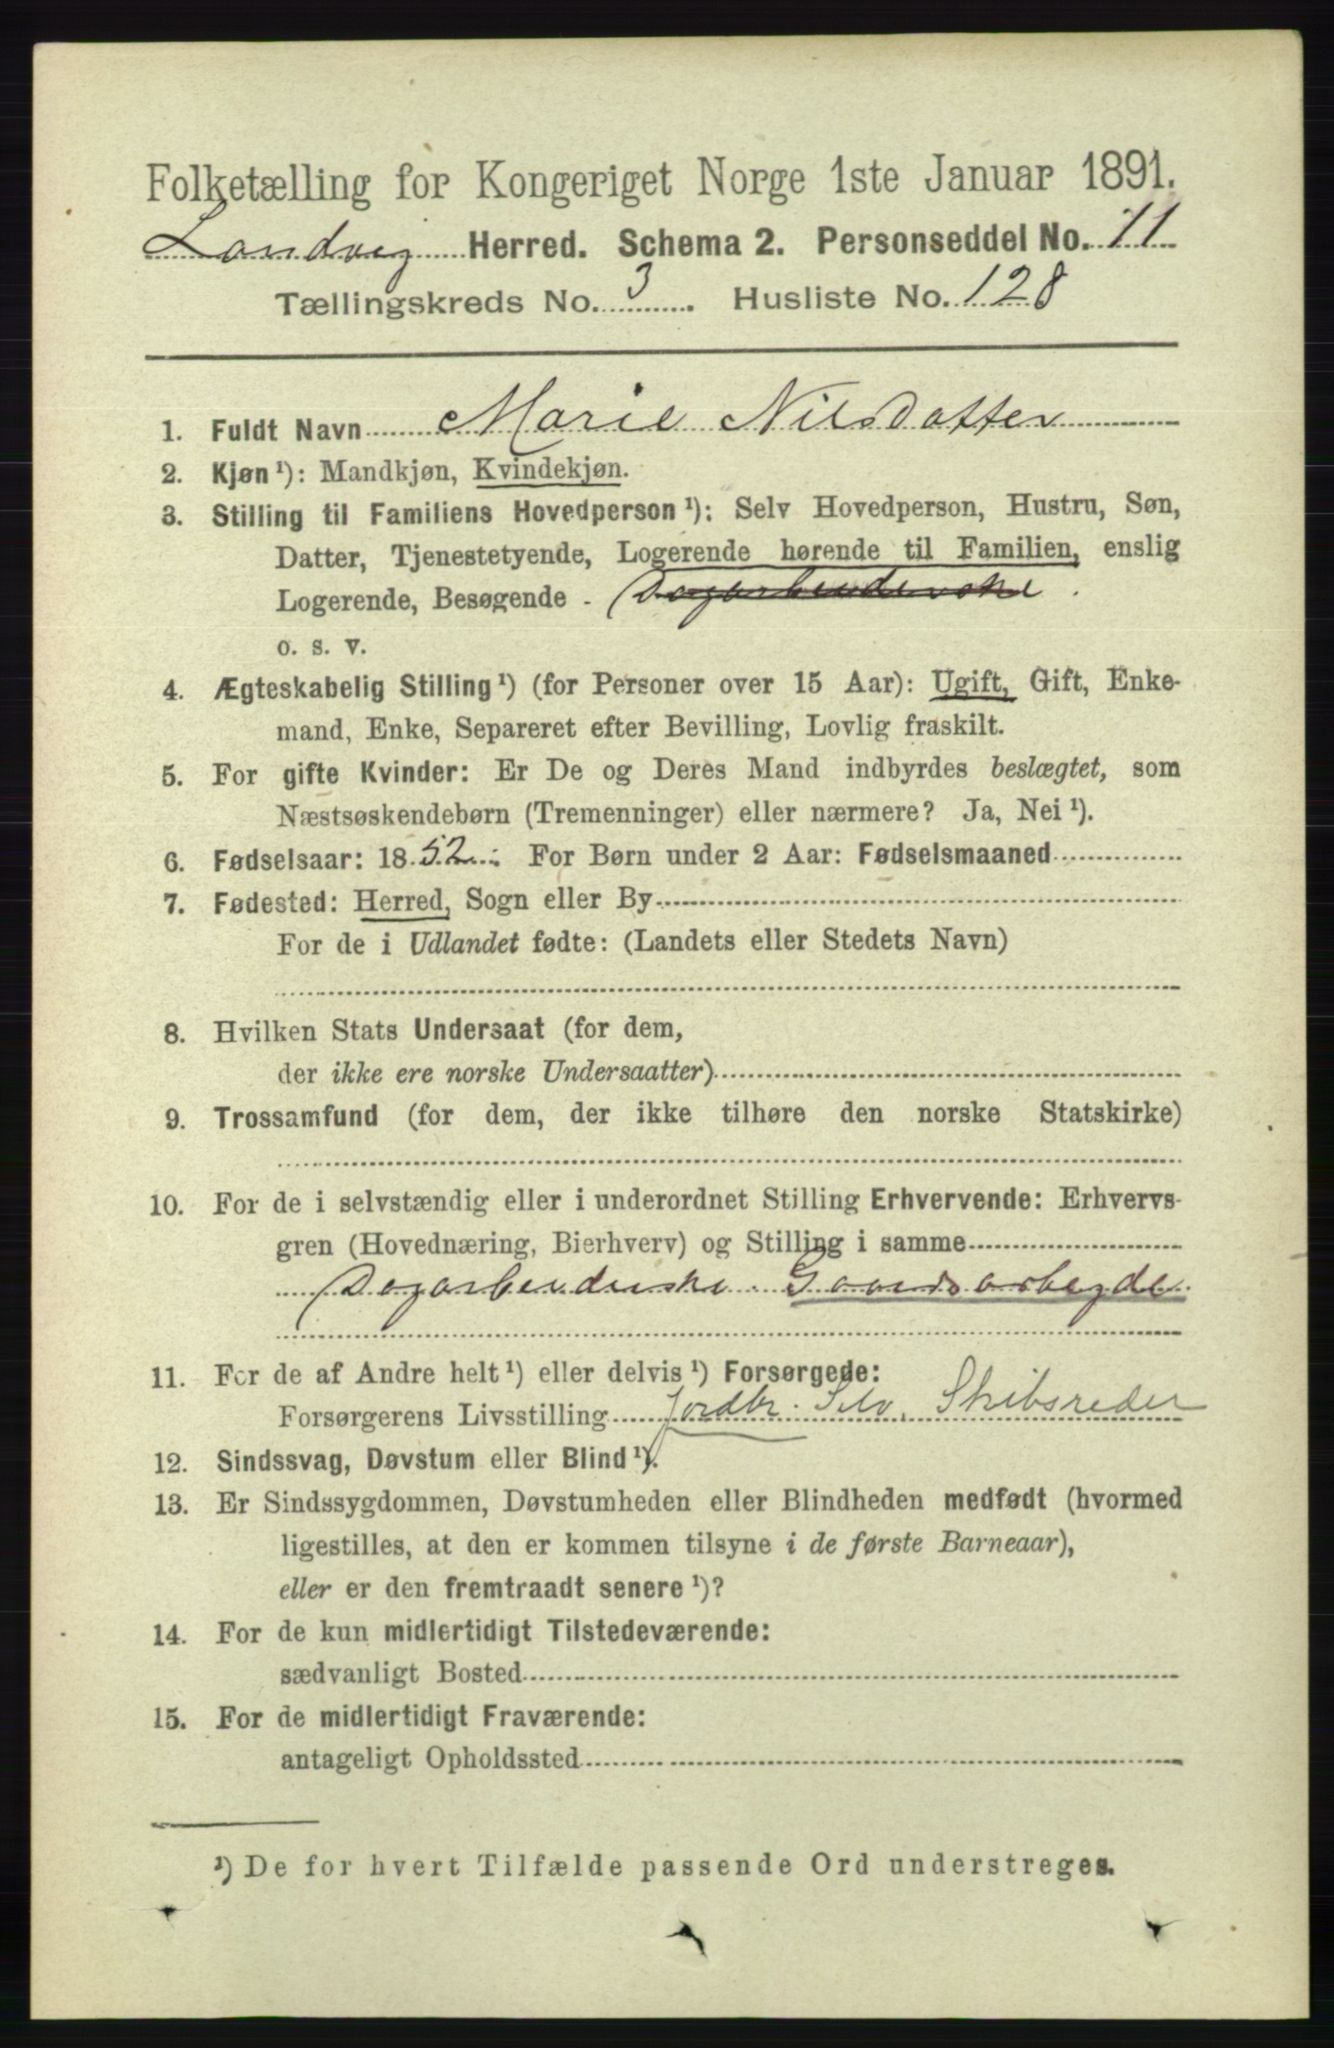 Folketælling for Kongeriget Norge 1ste Januar 1891.
Landvig Herred. Schema 2. Personseddel No. 11
Tællingskreds No. 3. Husliste No. 128
1. Fuldt Navn Marie Nilsdatter
2. Kjøn¹): Mandkjøn, Kvindekjøn.
3. Stilling til Familiens Hovedperson¹): Selv Hovedperson, Hustru, Søn,
Datter, Tjenestetyende, Logerende hørende til Familien, enslig
Logerende, Besøgende - Dagarbeiderske.
o. s. v.
4. Ægteskabelig Stilling¹) (for Personer over 15 Aar): Ugift, Gift, Enke-
mand, Enke, Separeret efter Bevilling, Lovlig fraskilt.
5. For gifte Kvinder: Er De og Deres Mand indbyrdes beslægtet, som
Næstsøskendebørn (Tremenninger) eller nærmere? Ja, Nei¹).
6. Fødselsaar: 1852. For Børn under 2 Aar: Fødselsmaaned
7. Fødested: Herred, Sogn eller By
For de i Udlandet fødte: (Landets eller Stedets Navn)
8. Hvilken Stats Undersaat (for dem,
der ikke ere norske Undersaatter)
9. Trossamfund (for dem, der ikke tilhøre den norske Statskirke)
10. For de i selvstændig eller i underordnet Stilling Erhvervende: Erhvervs-
gren (Hovednæring, Bierhverv) og Stilling i samme
Dagarbeiderske. Gaardsarbeyde.
11. For de af Andre helt¹) eller delvis¹) Forsørgede:
Forsørgerens Livsstilling Jordbr. Selv. Skibsreder
12. Sindssvag, Døvstum eller Blind¹).
13. Er Sindssygdommen, Døvstumheden eller Blindheden medfødt (hvormed
ligestilles, at den er kommen tilsyne i de første Barneaar),
eller er den fremtraadt senere¹)?
14. For de kun midlertidigt Tilstedeværende:
sædvanligt Bosted
15. For de midlertidigt Fraværende:
antageligt Opholdssted
¹) De for hvert Tilfælde passende Ord understreges.